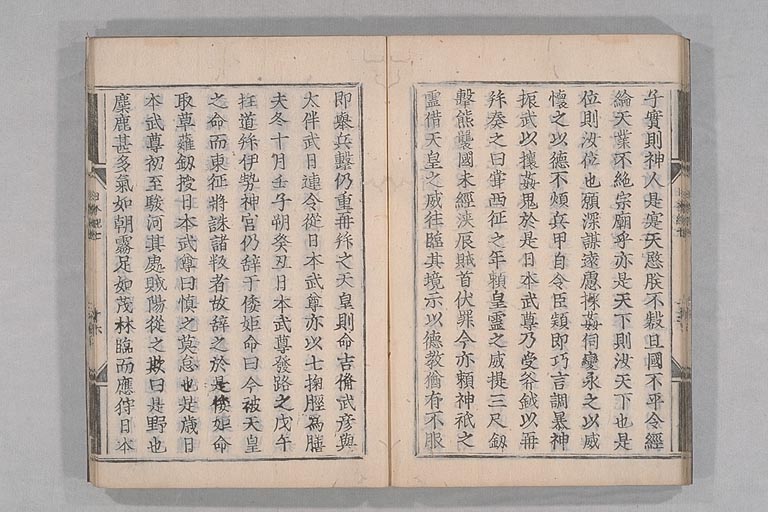 子實則神人是寔天愍朕不叡且國不平令經
綸天業不絶宗廟乎亦是天下則汝天下也是
位則汝位也願深謀遠慮探姦伺變示之以威
懷之以德不煩兵甲自令臣頴即巧言調暴神
振武以攘姦鬼於是日本武尊乃受斧鉞以再
拜奏之曰甞西征之年頼皇靈之威提三尺釼
擊熊襲國未經浹辰賊首伏罪今亦賴神祇之
靈借天皇之威往臨其境示以德教猶有不服
即舉兵擊仍重再拜之天皇則命吉備武彦與
大伴武日連令從日本武尊亦以七掬脛為膳
夫冬十月壬子朔癸丑日本武尊發路之戊午
抂道拜伊勢神宮仍辞于倭姫命曰今被天皇
之命而東征將誅諸叛者故辞之於是倭姫命
取草薙釼授日本武尊曰慎之莫怠也是歳日
本武尊初至駿河其處賊陽從之欺曰是野也
麋鹿甚多氣如朝霧足如茂林臨而應狩日本